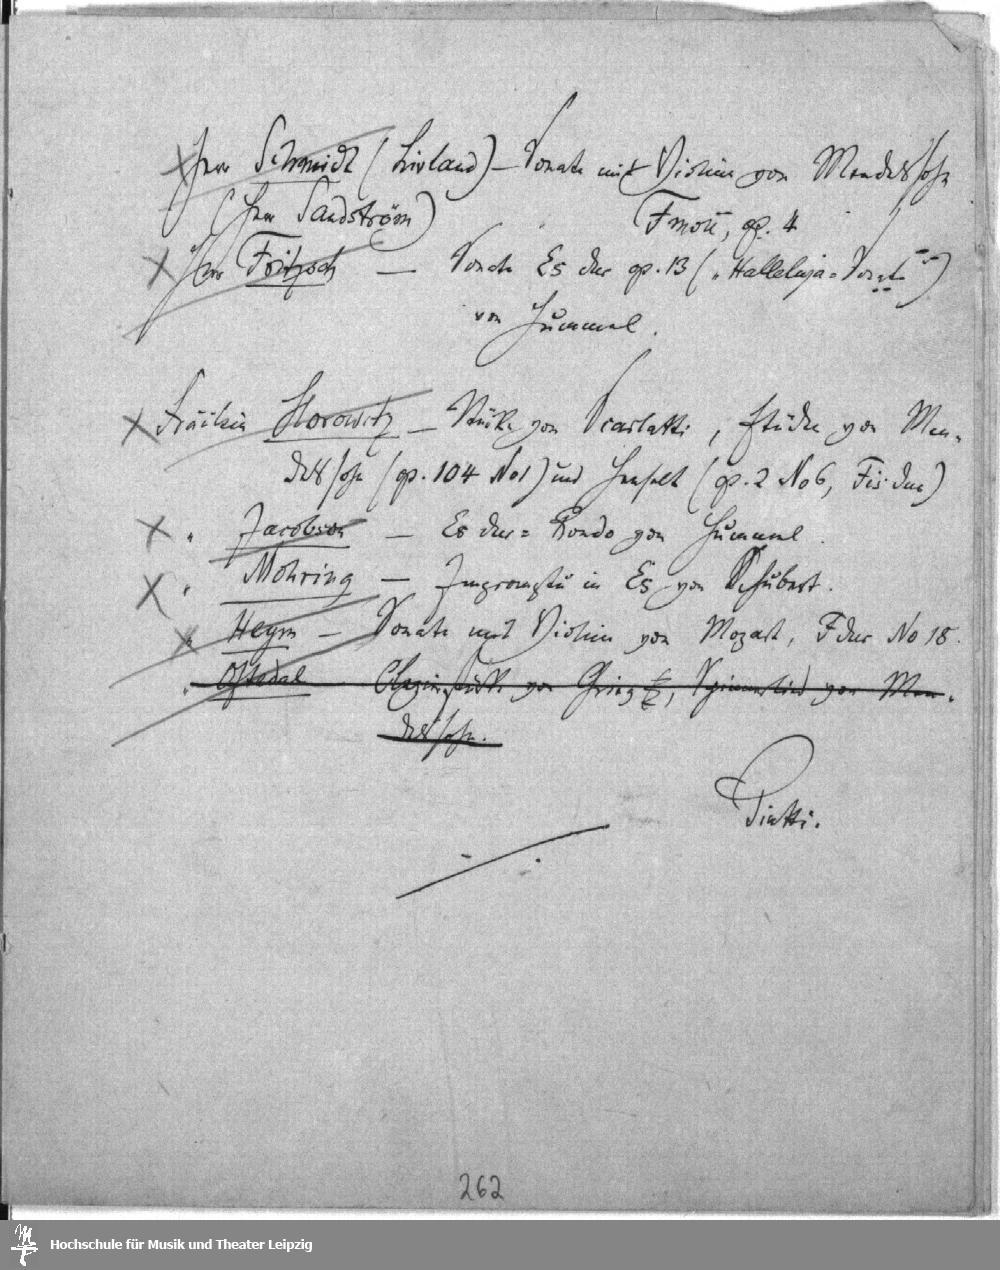 Herr Schmidt (Livland) – Sonate mit Violine von Mendelssohn
(Herr Sandström) Fmoll, op. 4
Herr Fritzsch – Sonate Es dur op. 13 („Halleluja-Sonate“)
von Hummel.
Fräulein Horowitz – Stücke von Scarlatti, Etüden von Men-
delssohn (op. 104 No 1) und Henselt (op. 2 No 6, Fis dur)
" Jacobson – Es dur-Rondo von Hummel.
" Möhring – Impromptu in Es von Schubert.
" Heym – Sonate mit Violine von Mozart, Fdur No 18.
" Clavierstücke von Grieg, Spinnerlied von Men-
delssohn.
262
Hochschule für Musik und Theater Leipzig